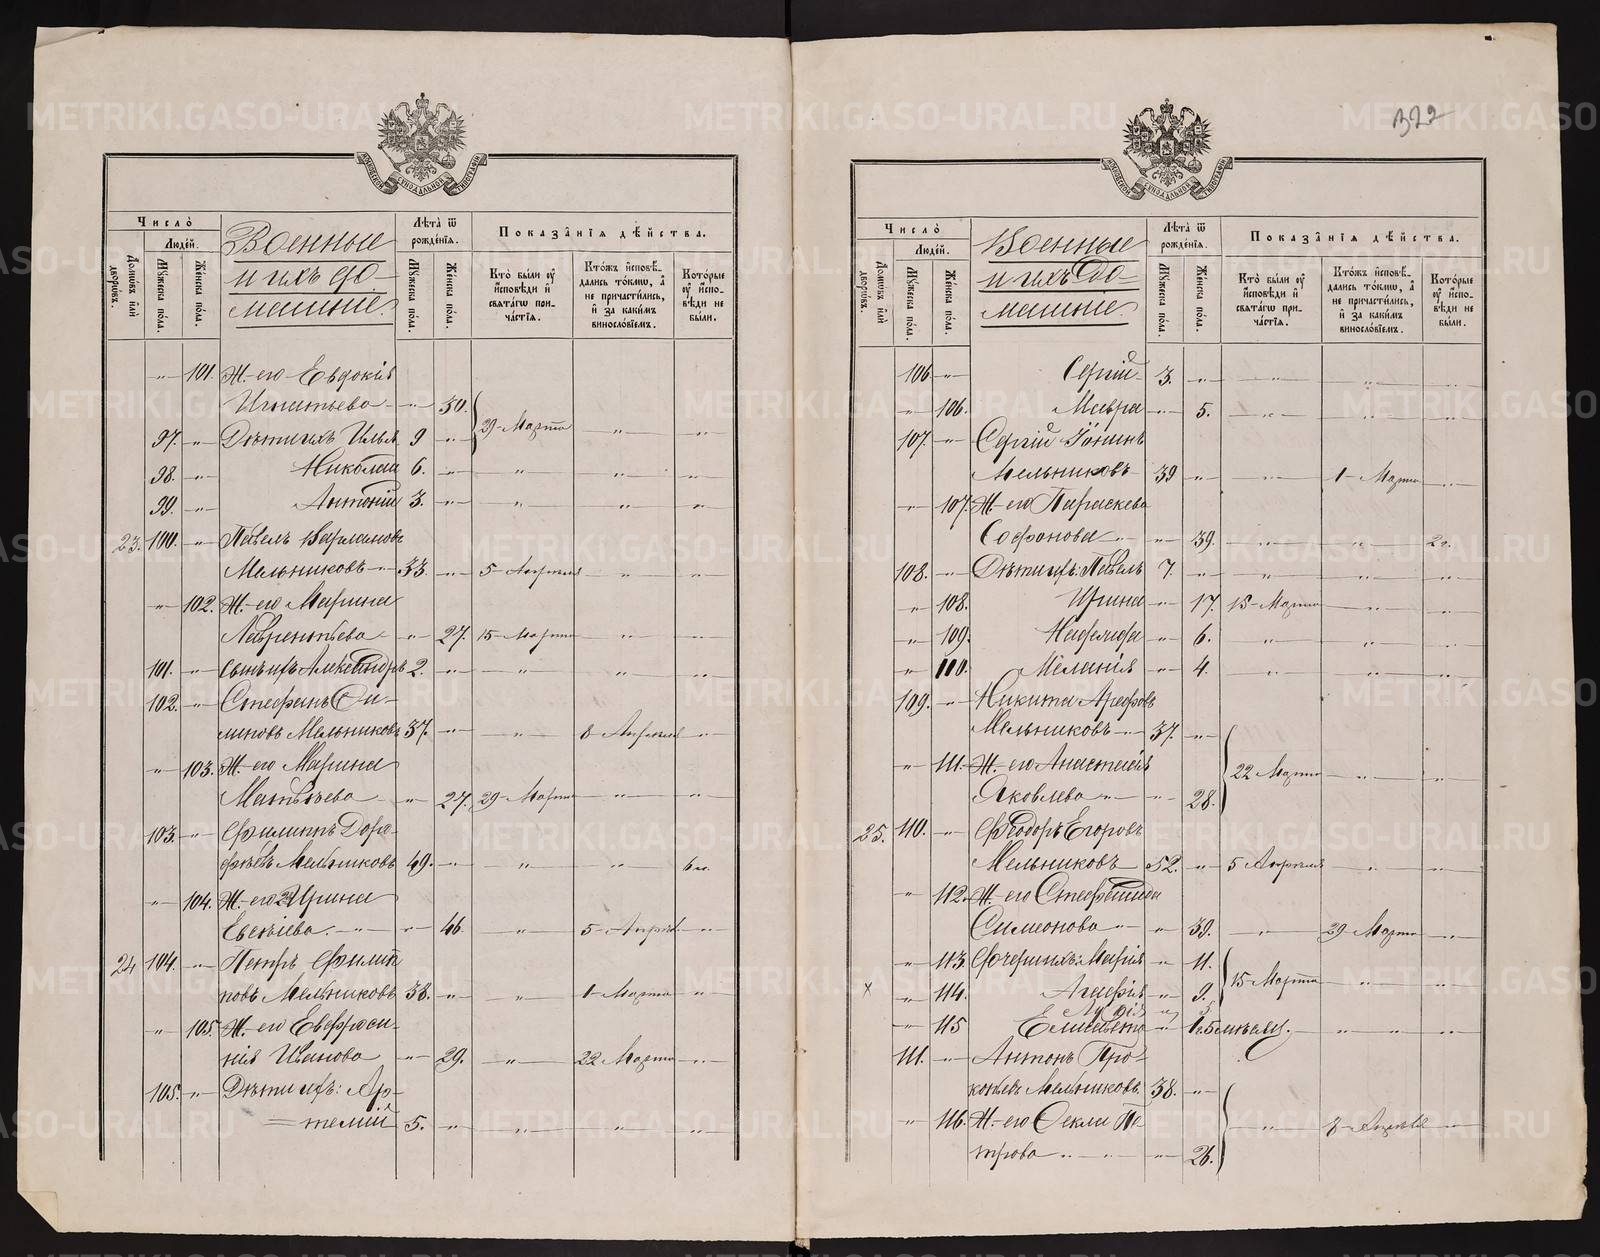 322
МОСКОВСКОЙ СѴНОДАЛЬНОЙ ТИПОГРАФІИ
Число̀
Людей.
Домѡвъ и҆лѝ дворѡвъ.
Мꙋжеска по́ла.
Женска по́ла.
Военные
и ихъ до-
машніе.
Лѣ́та ѿ рожде́нїѧ.
Мꙋжеска по́ла.
Женска по́ла.
Показа́нїѧ дѣ́йства.
Кто̀ бы́ли ᲂу҆ и҆сповѣди и҆ свѧта́гѡ причастїѧ.
Кто́жъ и҆сповѣдались то́кмѡ, а҆ не причасти́лись, и҆ за каки́мъ винословїемъ.
Кото́рые ᲂу҆ и҆сповѣди не бы́ли.
" 101. Ж. его Евдокія
Игнатьева " 30.
97. " Дѣти ихъ Илья 9 " 29 Марта " "
98. " Николай 6. " " " "
99. " Антоній 3. " " " "
23. 100. " Павелъ Варламовъ
Мельниковъ " 33. " 5 Апрѣля " "
" 102. Ж. его Марина
Лаврентьева " 27. 15 Марта " "
101. " сынъ ихъ Александръ 2. " " " "
102. " Стефанъ Фи-
липовъ Мельниковъ 37. " " 8 Апрѣля "
" 103. Ж. его Марина
Матвѣева " 27. 29 Марта " "
103. " Филиппъ Доро-
фѣевъ Мельниковъ 49. " " "
" 104. Ж. его Ирина
" 46. " 5 Апрѣля "
24 104. " Петръ Филип-
повъ Мельниковъ 38. " " 1 Марта "
" 105. Ж. его Евфроси-
нія Иванова " 29. " 22 Марта "
105. " Дѣти ихъ: Ар-
темій 5. " " " "
Число̀
Людей.
Домѡвъ и҆лѝ дворѡвъ.
Мꙋжеска по́ла.
Женска по́ла.
Военные
и ихъ до-
машніе.
Лѣ́та ѿ рожде́нїѧ.
Мꙋжеска по́ла.
Женска по́ла.
Показа́нїѧ дѣ́йства.
Кто̀ бы́ли ᲂу҆ и҆сповѣди и҆ свѧта́гѡ причастїѧ.
Кто́жъ и҆сповѣдались то́кмѡ, а҆ не причасти́лись, и҆ за каки́мъ винословїемъ.
Кото́рые ᲂу҆ и҆сповѣди не бы́ли.
106 " Сергій 3. " " " "
" 106. Мавра " 5. " " "
107. " Сергій Іонинъ
Мельниковъ 39 " " 1 Марта "
" 107. Ж. его Параскева
Софонова " " 39. " " 2г.
108. " Дѣти ихъ: Павелъ 7. " " " "
" 108. Ирина " 17. 15 Марта " "
" 109. " 6. " " "
" 110. Меланія " 4. " " "
109. " Никита Арефовъ
Мельниковъ " 37. "
" 111. Ж. его Анастасія 22 Марта " "
Яковлева " " 28.
25. 110. " Ѳеодоръ Егоровъ
Мельниковъ 52. " 5 Апрѣля " "
" 112. Ж. его Стефанида
Симеонова " " 39. " 29 Марта "
" 113. Дочери ихъ: Марія " 11.
" 114. Агафія " 9. 15 Марта " "
" 115 Елисавета " " " "
111. " Антонъ Про-
копьевъ Мельниковъ 38. "
" 116. Ж. его Ѳекла Пе- " 8 Апрѣля "
трова " " " 26.
METRIKI.GASO-URAL.RU